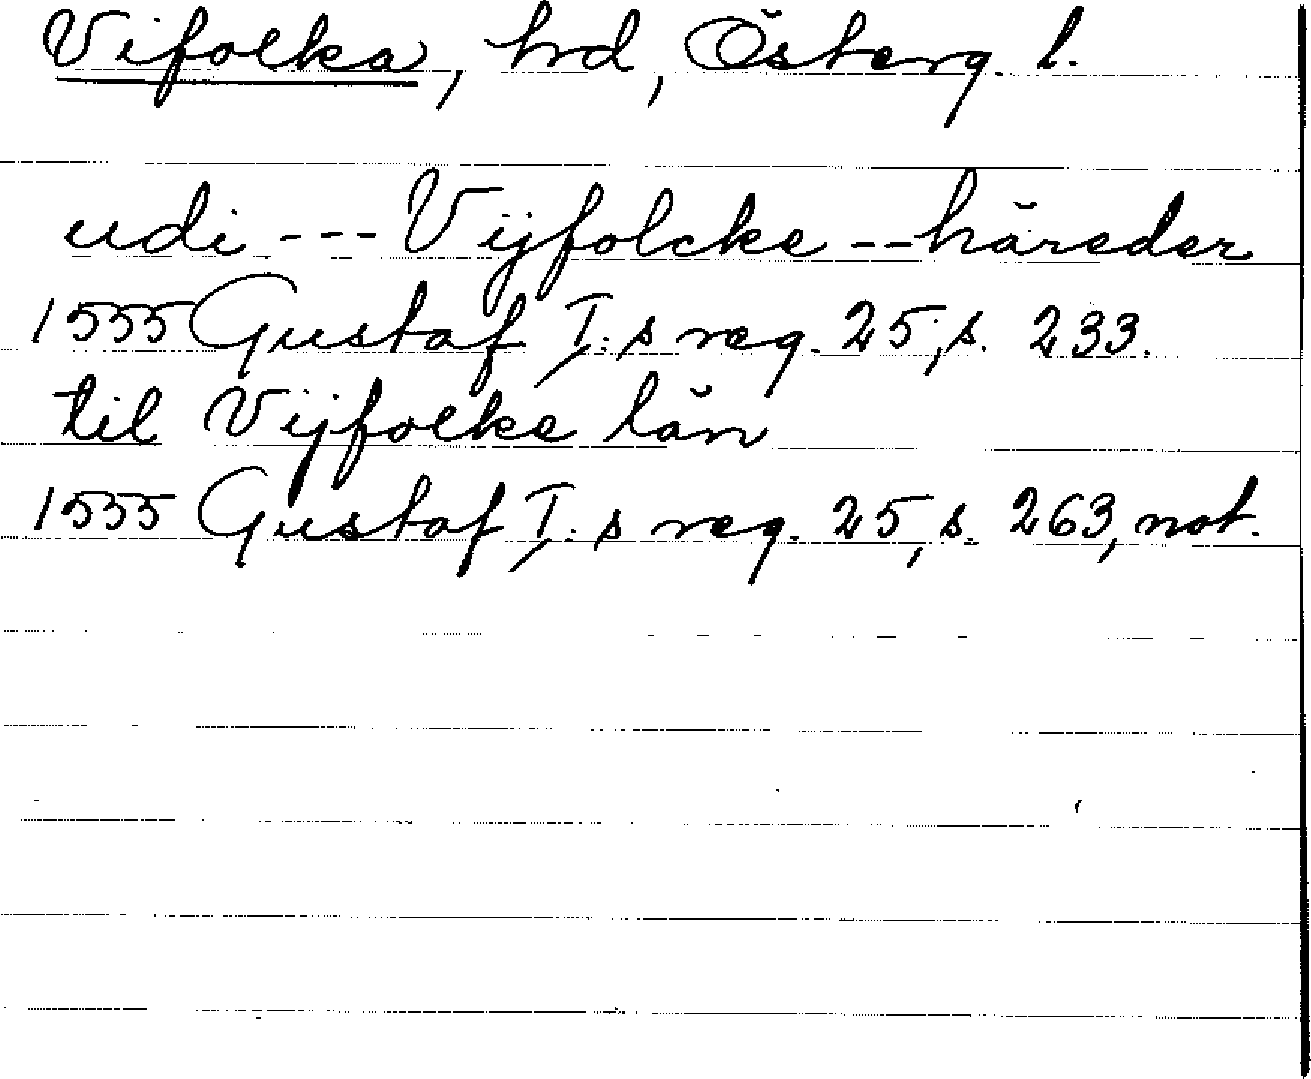 Vifolka, hrd, Österg. l.
udi --- Vijfolcke -- häreder
1555 Gustaf I:s reg. 25, s. 233.
til Vijfolke län
1555 Gustaf I:s reg. 25, s. 263, not.